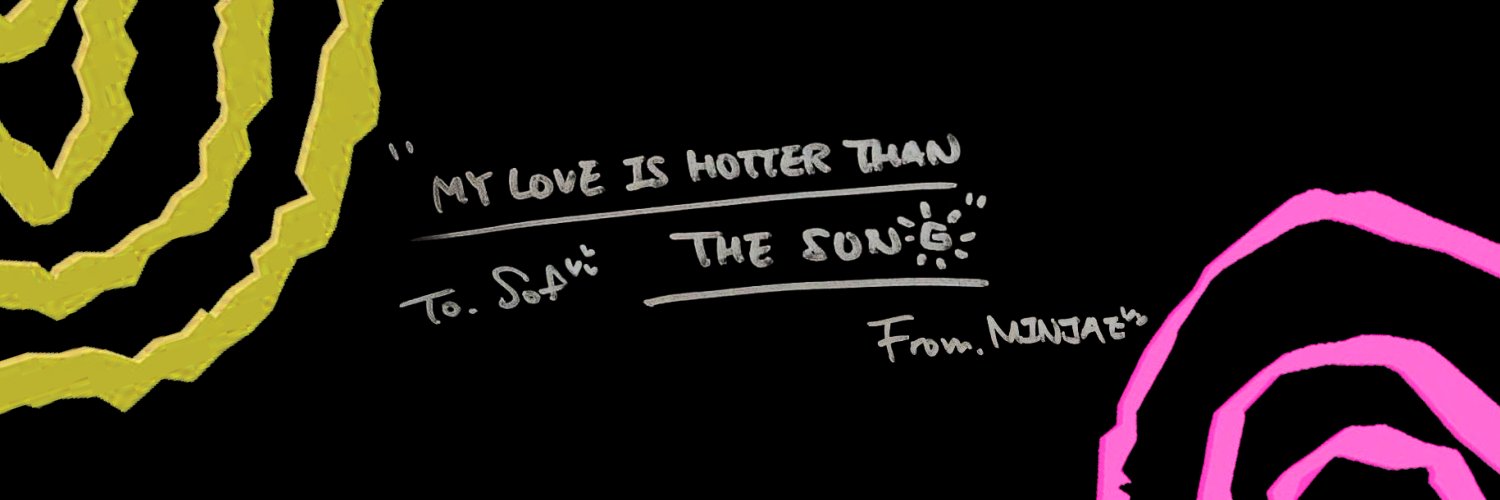 "MY LOVE IS HOTTER THAN
THE SUN"
To. Sofi
From. MINJAE